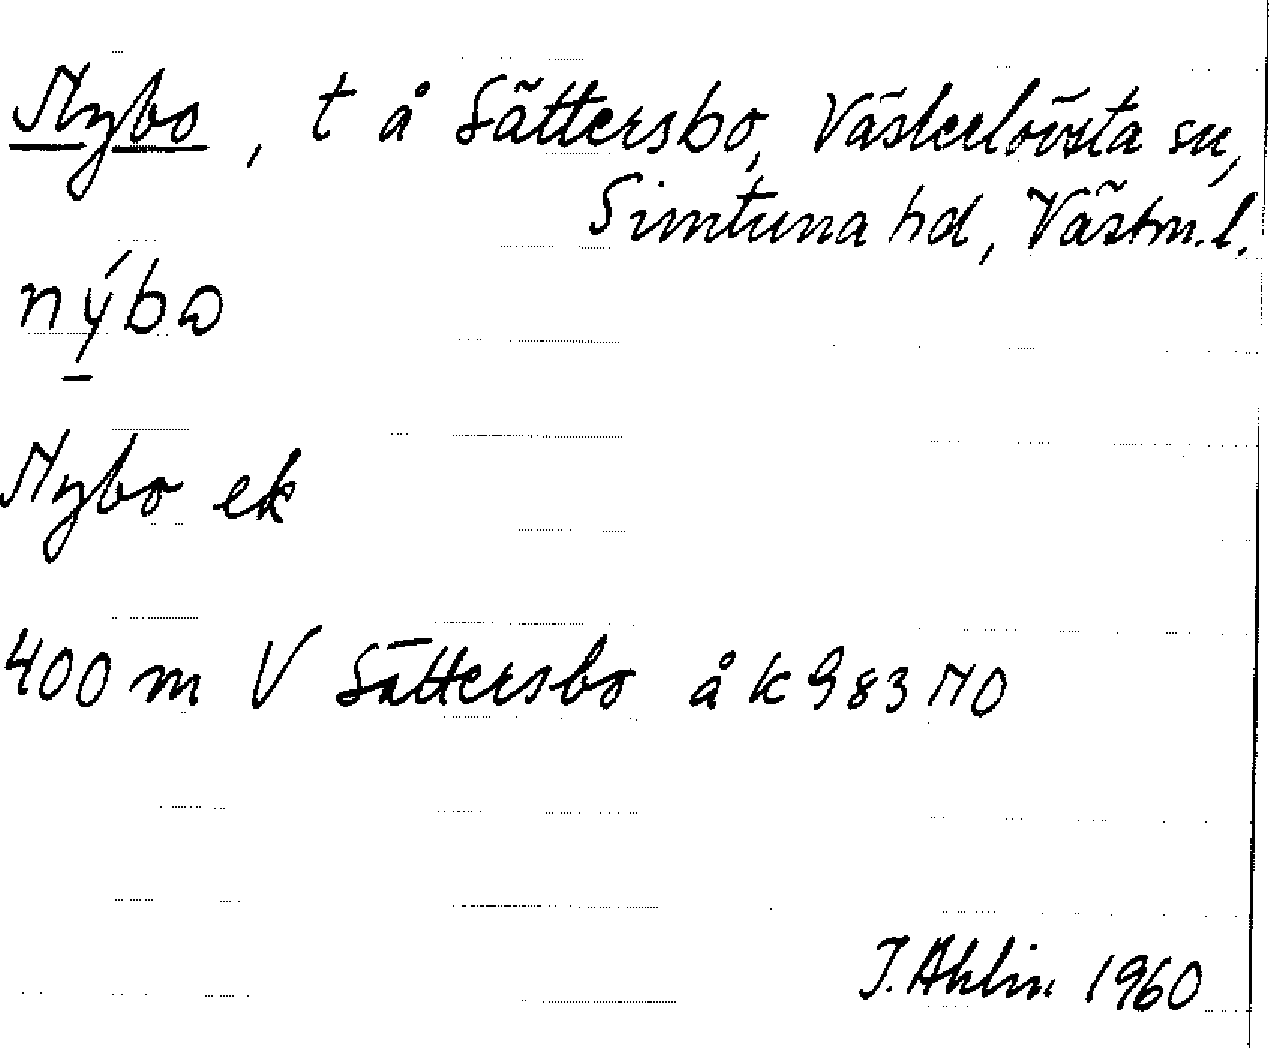 Nybo, t å Sättersbo, Västerlövsta sn,
Simtuna hd, Västm. l.
nýbω
Nybo ek
400 m V Sättersbo å k 983 NO
J. Ahlin 1960